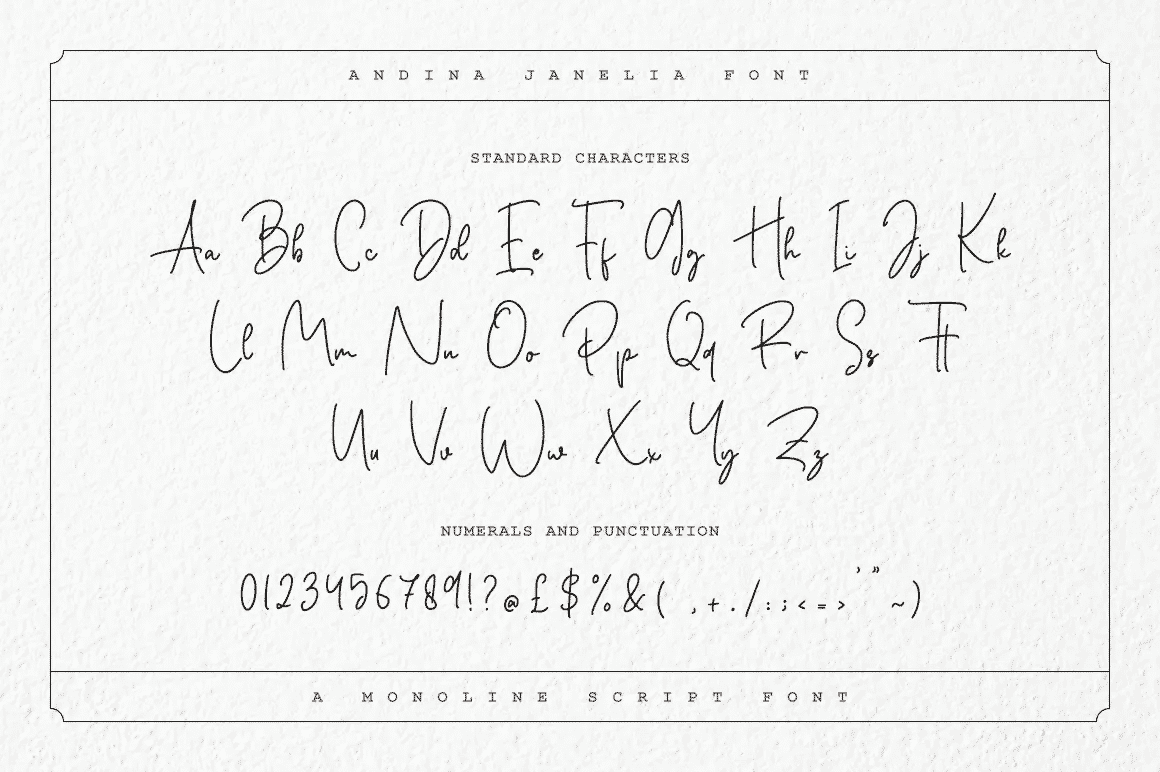 ANDINA JANELIA FONT
STANDARD CHARACTERS
Aa Bb Cc Dd Ee Ff Gg Hh Ii Jj Kk
Ll Mm Nn Oo Pp Qq Rr Ss Tt
Uu Vv Ww Xx Yy Zz
NUMERALS AND PUNCTUATION
0123456789!?@£$%&( ,+./:;<=>’” ~)
A MONOLINE SCRIPT FONT